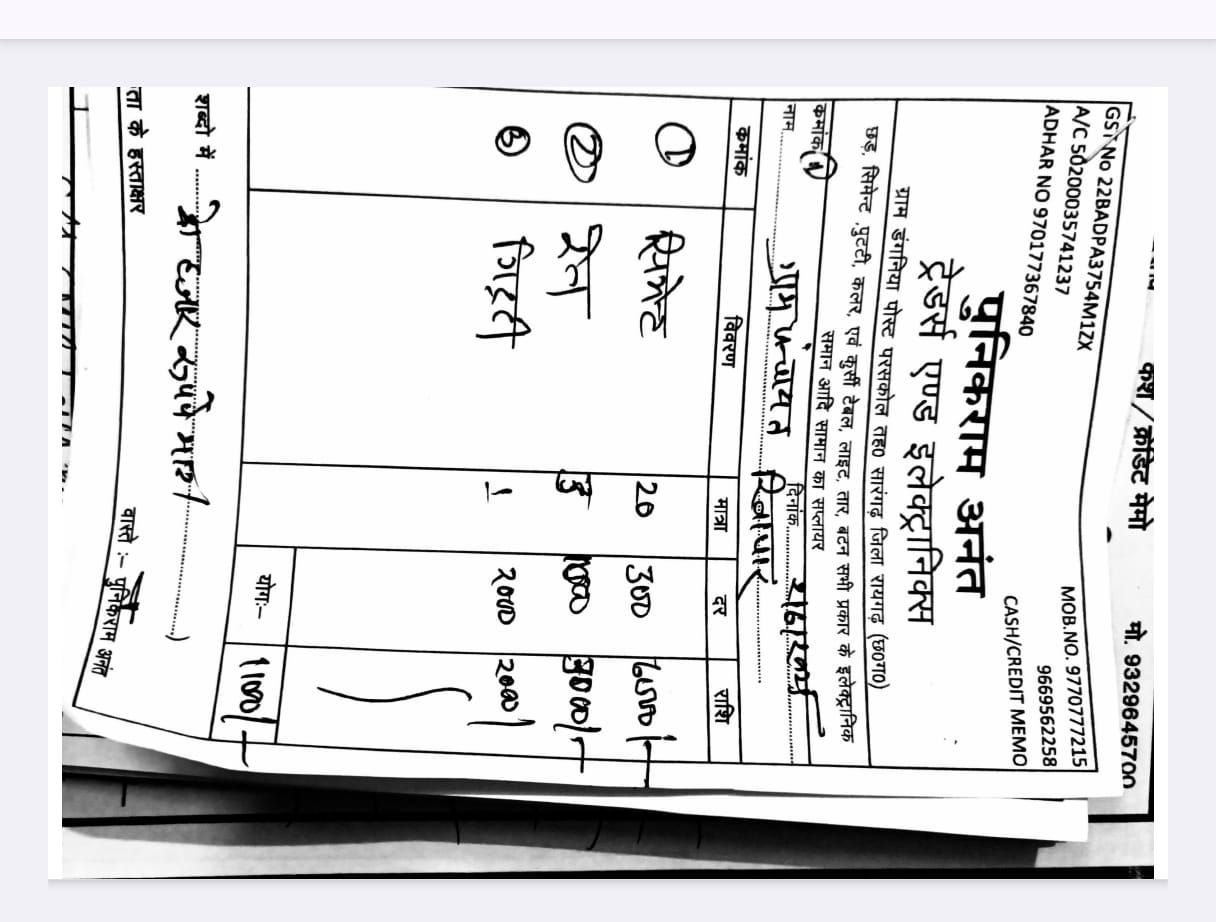 कश / क्रेडिट मेमो मो. 9329645700
GST No 22BADPA3754M1ZX MOB.NO. 9770777215
A/C 50200035741237 9669562258
ADHAR NO 970177367840 CASH/CREDIT MEMO
पुनिकराम अनंत
ट्रेडर्स एण्ड इलेक्ट्रानिक्स
ग्राम डंगनिया पोस्ट परसकोल तह0 सारंगढ़ जिला रायगढ़ (छ0ग0)
छड़, सिमेन्ट ,पुट्टी, कलर, एवं कुर्सी टेबल, लाइट, तार, बटन सभी प्रकार के इलेक्ट्रानिक
समान आदि सामान का सप्लायर
कमांक 1 दिनांक
नाम ग्राम पंचायत
कमांक विवरण मात्रा दर राशि
1 सिमेन्ट 20 300 6000/-
2 रेत 3 1000 3000/-
3 गिट्टी 1 2000 2000/
योगः– 11000/-
शब्दो में हजार रूपये मात्र )
ता के हस्ताक्षर वास्ते :– पुनिकराम अनंत